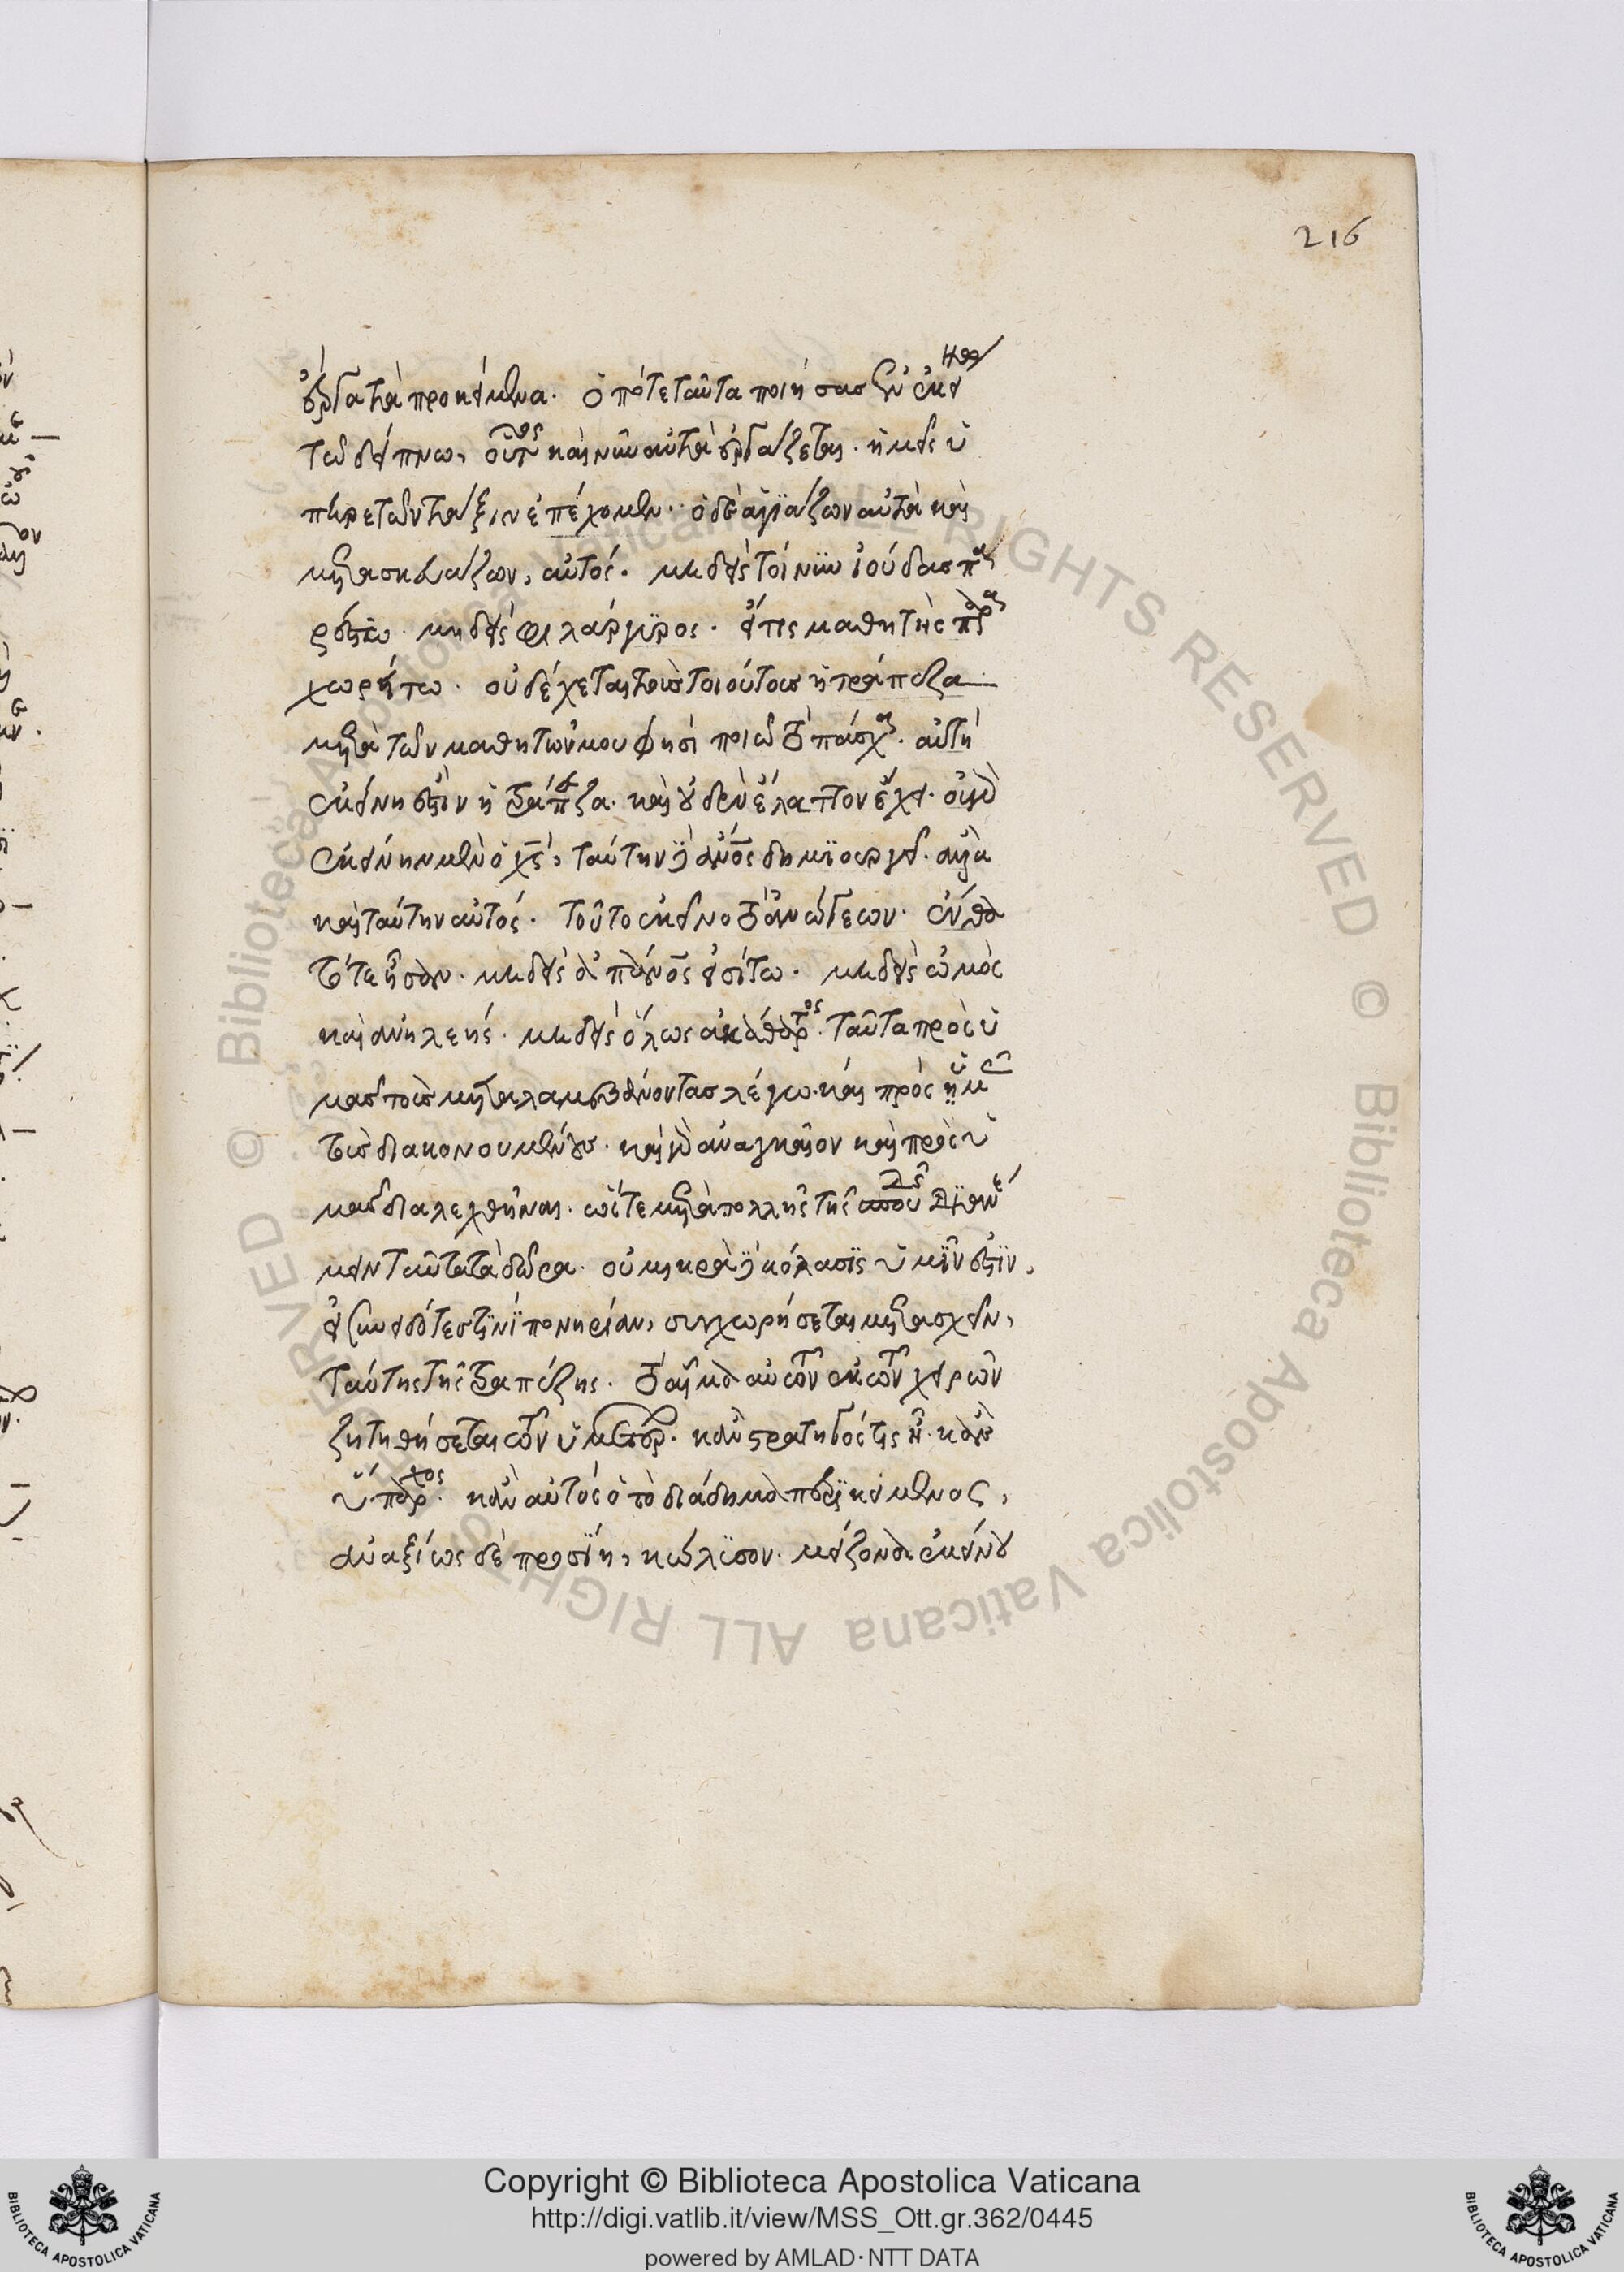 216
ἔργα τὰ προκείμενα. ὁ τότε ταῦτα ποιήσας ἐν ἐκείνῳ
τῷ δείπνῳ, οὗτος καὶ νῦν αὐτὰ ἐργάζεται. ἡμεῖς ὑ
πηρετῶν τάξιν ἐπέχομεν. ὁ δὲ ἁγιάζων αὐτὰ καὶ
μετασκευάζων, αὐτός. μηδεὶς τοίνυν ἰούδας πα
ρέστω. μηδεὶς φιλάργυρος. εἴ τις μαθητὴς πα
χωρείτω. οὐ δέχεται τοὺς τοιούτους ἡ τράπεζα
μετὰ τῶν μαθητῶν μου φησὶ ποιῶ τὸ πάσχα. αὐτὴ
ἐκείνη ἐστὶν ἡ τράπεζα. καὶ οὐδὲν ἔλαττον ἔχει. οὐ γὰρ
ἐκείνην μὲν ὁ χς, ταύτην δὲ ἄνος δημιουργεῖ. ἀλλὰ
καὶ ταύτην αὐτός. τοῦτο ἐκεῖνο τὸ ἀνώγεων. ἔνθα
τότε ἦσαν. μηδεὶς ἀπάνος εἰσίτω. μηδεὶς ὠμὸς
καὶ ἀνηλεής. μηδεὶς ὅλως ἀκάθαρτος. ταῦτα πρὸς ὑ
μᾶς τοὺς μεταλαμβάνοντας λέγω. καὶ πρὸς ὑμᾶς
τοὺς διακονουμένους. καὶ γὰρ ἀναγκαῖον καὶ πρὸς ὑ
μᾶς διαλεχθῆναι. ὥστε μετὰ πολλῆς τῆς σπουδῆς διανέ
μειν ταῦτα τὰ δῶρα. οὐ μικρὰ κόλασις ὑμῖν ἐστιν,
εἰ συνειδότες τινὶ πονηρίαν, συγχωρήσεται μετασχεῖν,
ταύτης τῆς τραπέζης. τὸ αἷμα αὐτοῦ ἐκ τῶν χειρῶν
ζητηθήσεται τῶν ὑμετέρων. κἂν στρατηγός τις ᾖ. κἂν
ὕπαρχος. κἂν αὐτὸς ὁ τὸ διάδημα περικείμενος,
ἀναξίως δὲ προσίῃ, κώλυσον. μείζονα ἐκείνου
Copyright © Biblioteca Apostolica Vaticana
http://digi.vatlib.it/view/MSS_Ott.gr.362/0445
powered by AMLAD·NTT DATA